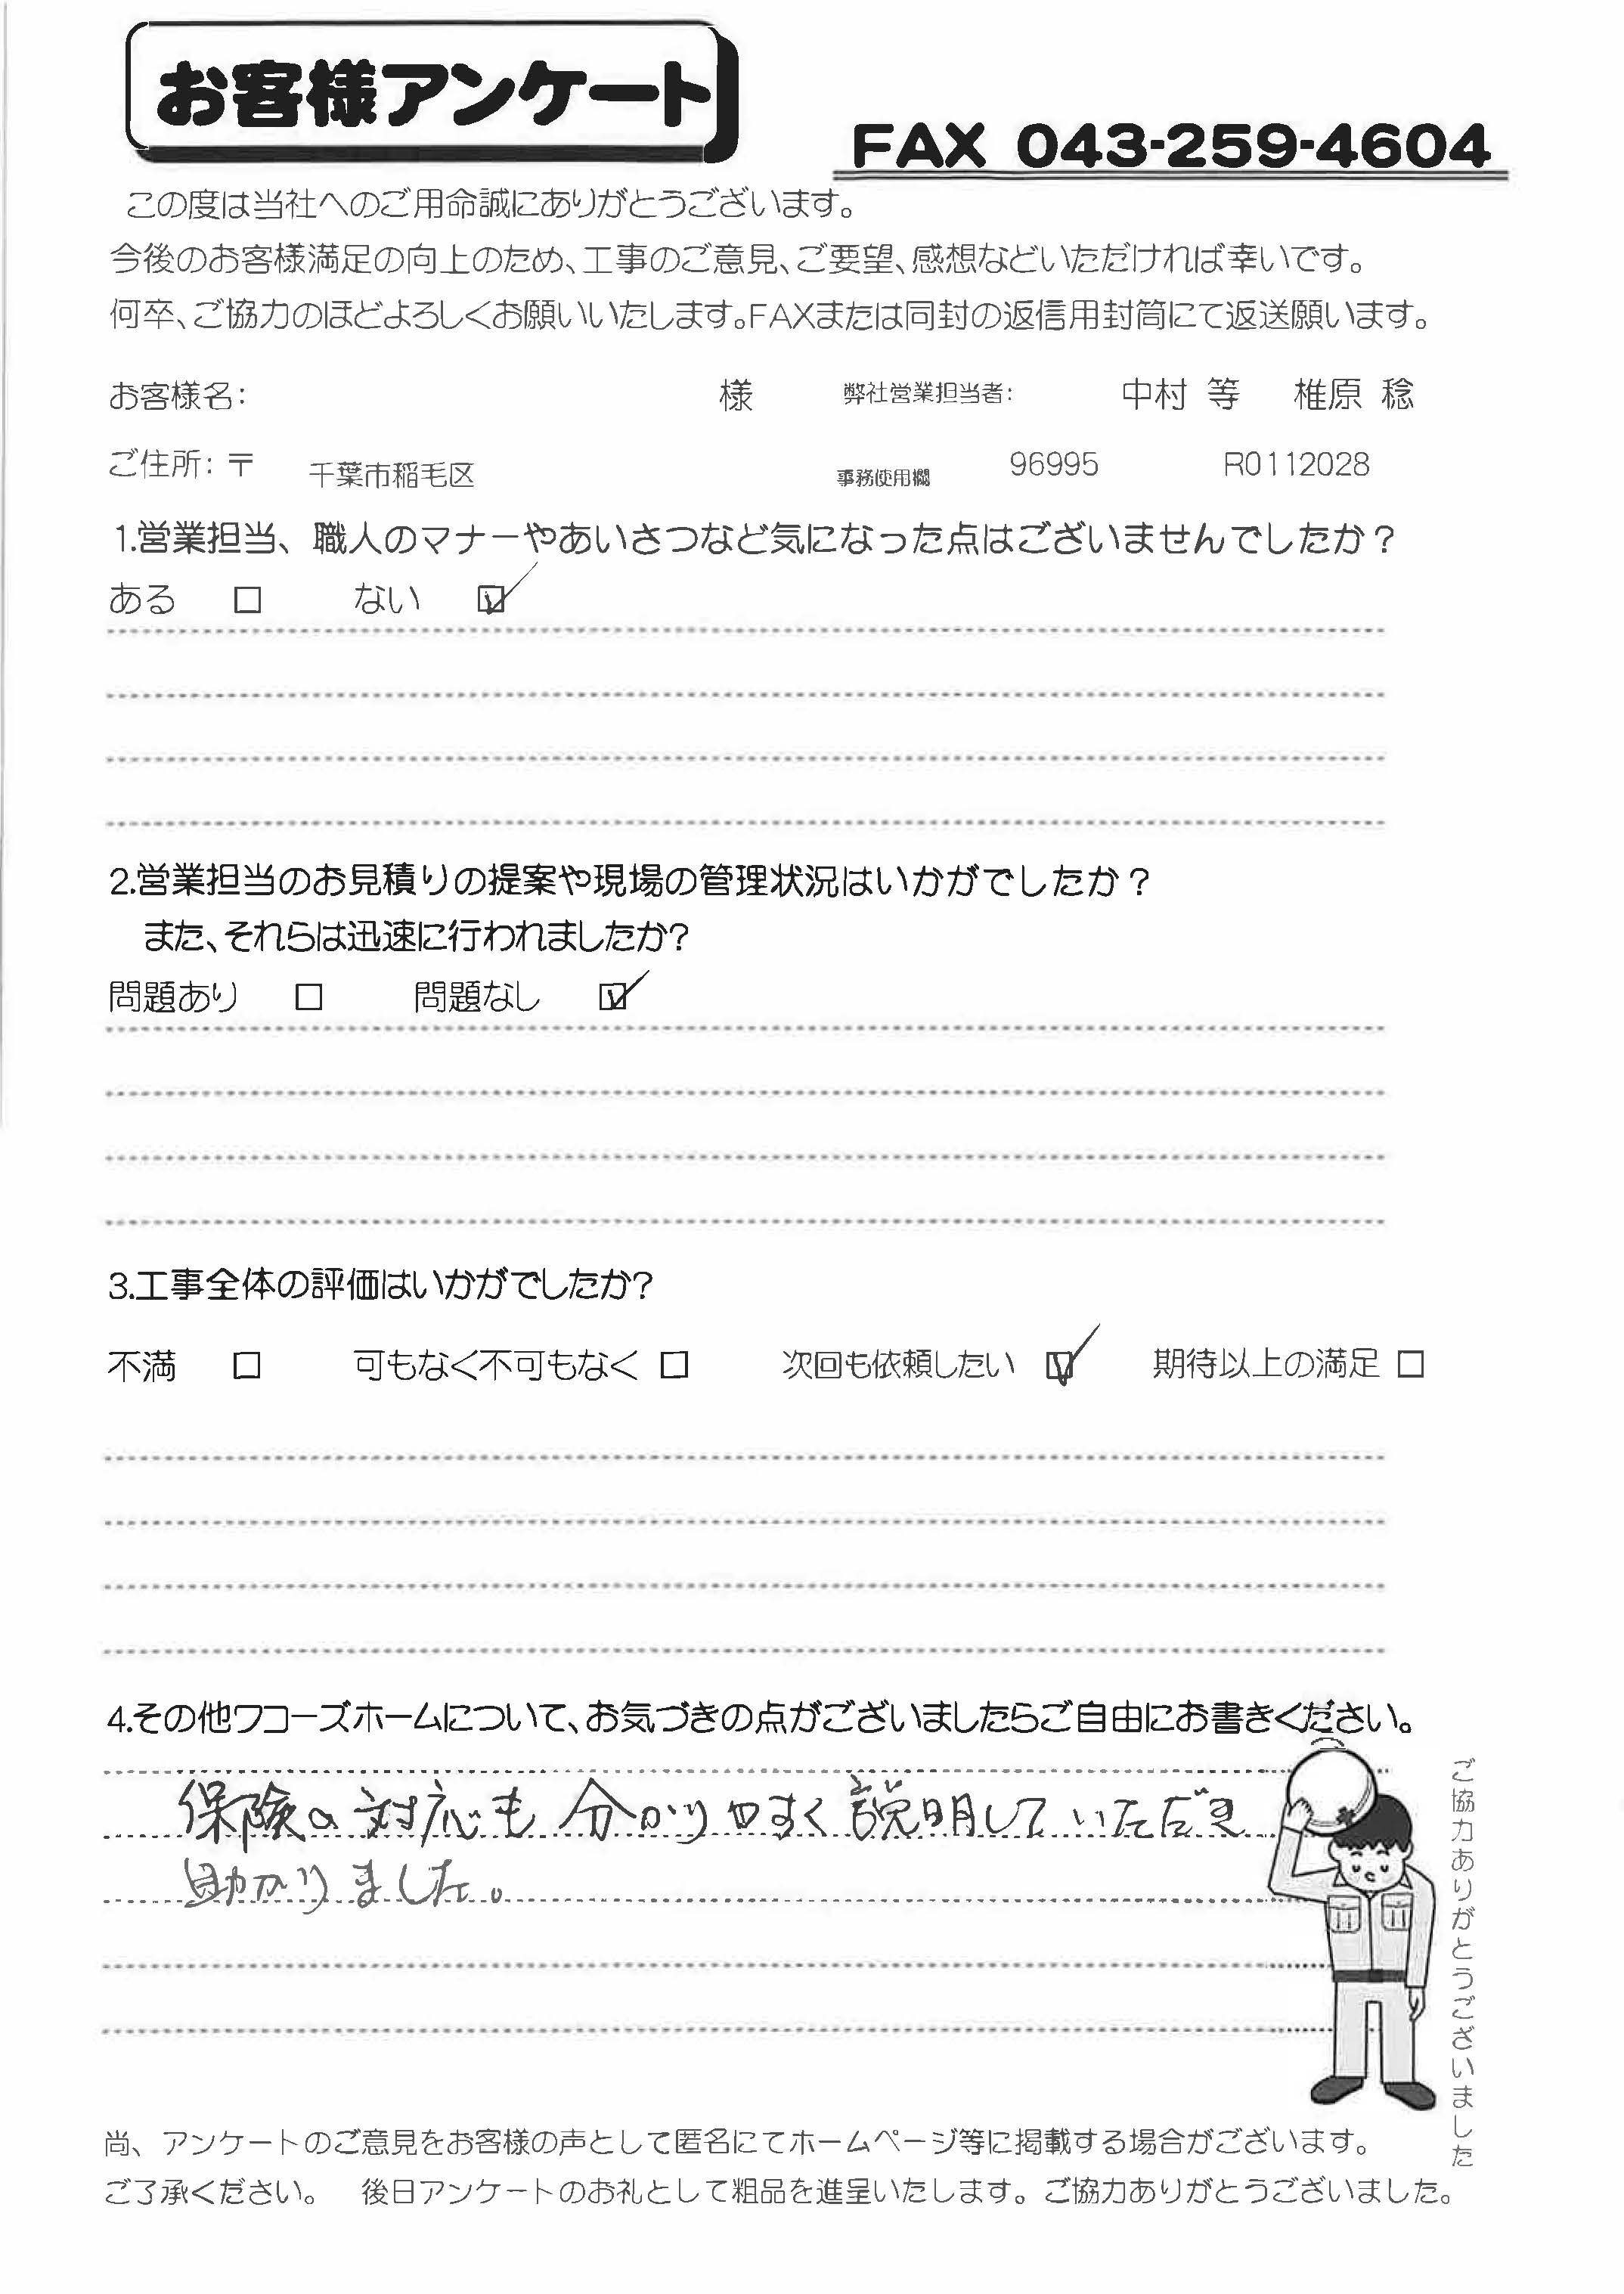 お客様アンケート
FAX 043-259-4604
この度は当社へのご用命誠にありがとうございます。
今後のお客様満足の向上のため、工事のご意見、ご要望、感想などいただければ幸いです。
何卒、ご協力のほどよろしくお願いいたします。FAXまたは同封の返信用封筒にて返送願います。
お客様名： 様 弊社営業担当者： 中村 等 椎原 稔
ご住所：〒 千葉市稲毛区 事務使用欄 96995 R0112028
1.営業担当、職人のマナーやあいさつなど気になった点はございませんでしたか？
ある □ ない ☑
2.営業担当のお見積りの提案や現場の管理状況はいかがでしたか？
また、それらは迅速に行われましたか?
問題あり □ 問題なし ☑
3.工事全体の評価はいかがでしたか?
不満 □ 可もなく不可もなく □ 次回も依頼したい ☑ 期待以上の満足 □
4.その他ワコーズホームについて、お気づきの点がございましたらご自由にお書きください。
保険の対応も分かりやすく説明していただき
助かりました。
ご協力ありがとうございました
尚、アンケートのご意見をお客様の声として匿名にてホームページ等に掲載する場合がございます。
ご了承ください。 後日アンケートのお礼として粗品を進呈いたします。ご協力ありがとうございました。